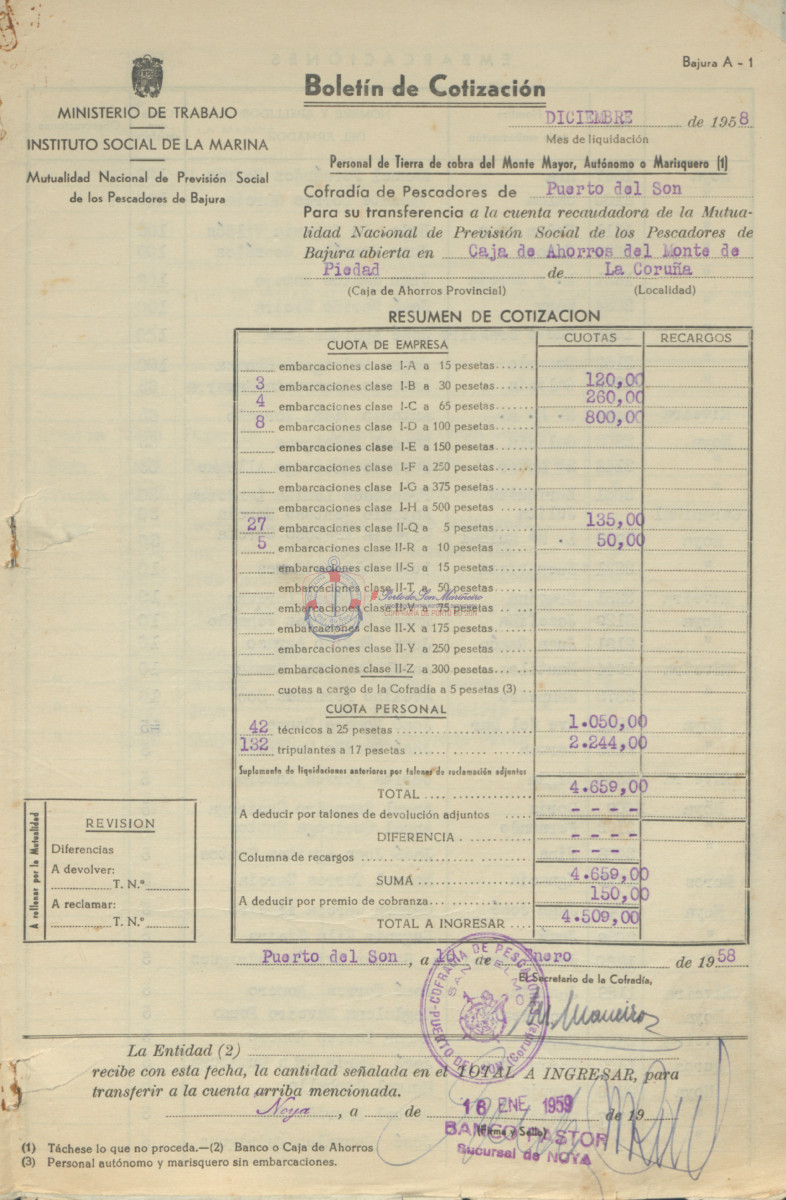 Bajura A - 1
MINISTERIO DE TRABAJO
INSTITUTO SOCIAL DE LA MARINA
Mutualidad Nacional de Previsión Social
de los Pescadores de Bajura
Boletín de Cotización
DICIEMBRE de 1958
Mes de liquidación
Personal de Tierra de cobra del Monte Mayor, Autónomo o Marisquero (1)
Cofradía de Pescadores de Puerto del Son
Para su transferencia a la cuenta recaudadora de la Mutua-
lidad Nacional de Previsión Social de los Pescadores de
Bajura abierta en Caja de Ahorros del Monte de
Piedad de La Coruña
(Caja de Ahorros Provincial) (Localidad)
RESUMEN DE COTIZACION
CUOTA DE EMPRESA CUOTAS RECARGOS
embarcaciones clase I-A a 15 pesetas
3 embarcaciones clase I-B a 30 pesetas 120,00
4 embarcaciones clase I-C a 65 pesetas 260,00
8 embarcaciones clase I-D a 100 pesetas 800,00
embarcaciones clase I-E a 150 pesetas
embarcaciones clase I-F a 250 pesetas
embarcaciones clase I-G a 375 pesetas
embarcaciones clase I-H a 500 pesetas
27 embarcaciones clase II-Q a 5 pesetas 135,00
5 embarcaciones clase II-R a 10 pesetas 50,00
embarcaciones clase II-S a 15 pesetas
embarcaciones clase II-T a 50 pesetas
embarcaciones clase II-V a 75 pesetas
embarcaciones clase II-X a 175 pesetas
embarcaciones clase II-Y a 250 pesetas
embarcaciones clase II-Z a 300 pesetas
cuotas a cargo de la Cofradía a 5 pesetas (3)
CUOTA PERSONAL
42 técnicos a 25 pesetas 1.050,00
132 tripulantes a 17 pesetas 2.244,00
Suplemento de liquidaciones anteriores por talones de reclamación adjuntos
TOTAL 4.659,00
A deducir por talones de devolución adjuntos - - - -
DIFERENCIA - - - -
Columna de recargos - - -
SUMA 4.659,00
A deducir por premio de cobranza 150,00
TOTAL A INGRESAR 4.509,00
A rellenar por la Mutualidad
REVISION
Diferencias
A devolver:
T. N.º
A reclamar:
T. N.º
Puerto del Son, a 16 de Enero de 1958
El Secretario de la Cofradía,
M. Maneiro
COFRADIA DE PESCADORES
SAN TELMO
PUERTO DEL SON (Coruña)
La Entidad (2)
recibe con esta fecha, la cantidad señalada en el TOTAL A INGRESAR, para
transferir a la cuenta arriba mencionada.
Noya, a de 16 ENE 1959 de 19
(Firma y Sello)
BANCO PASTOR
Sucursal de NOYA
(1) Táchese lo que no proceda.—(2) Banco o Caja de Ahorros
(3) Personal autónomo y marisquero sin embarcaciones.